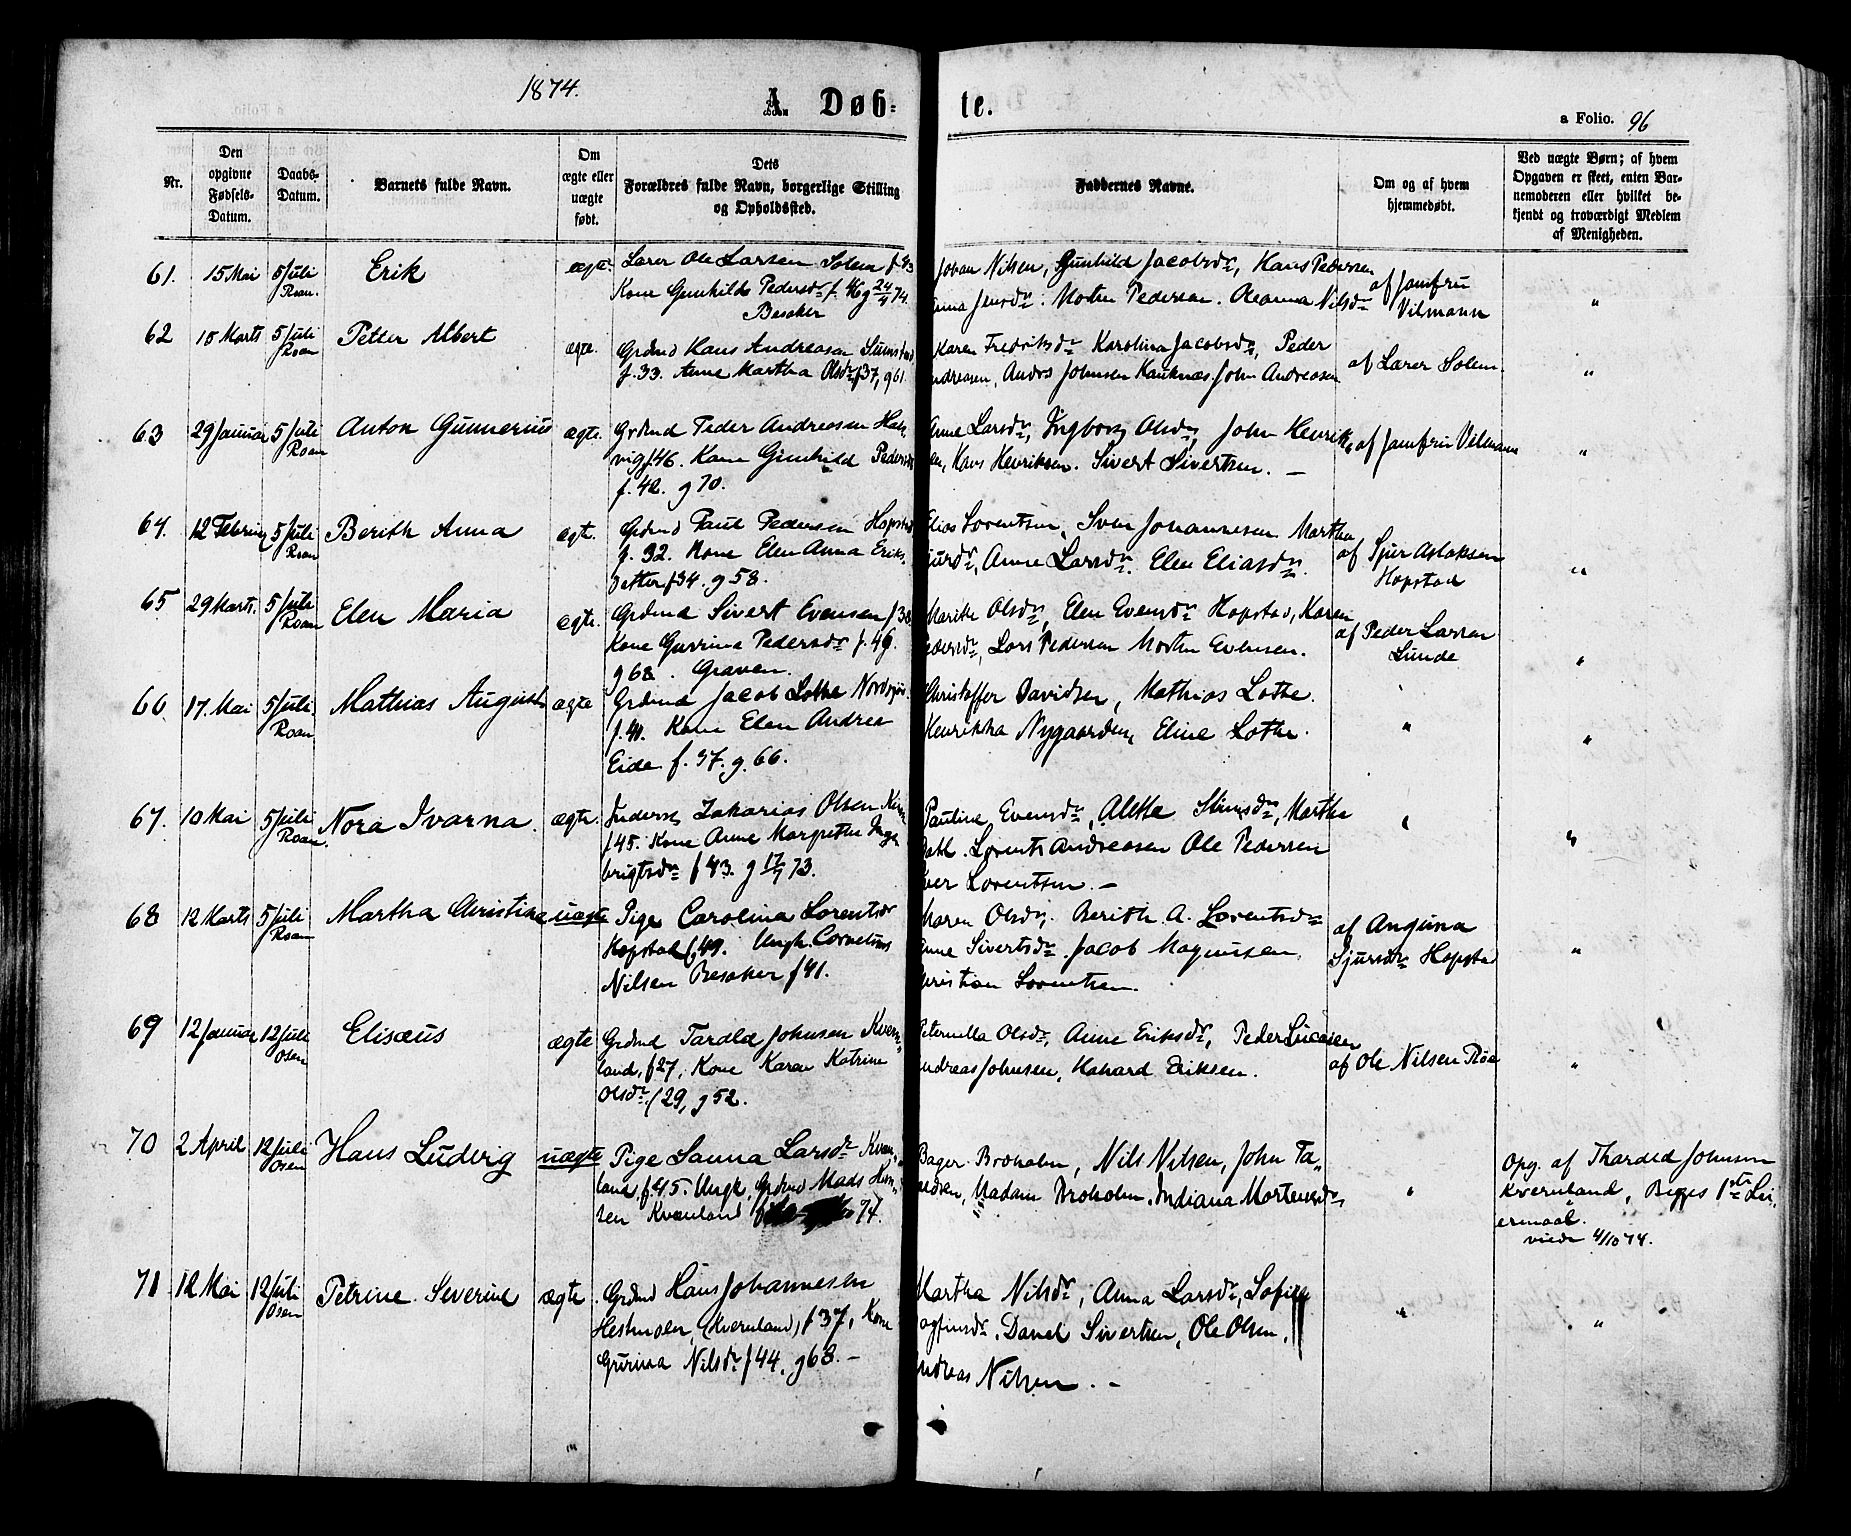 1874.
A. Døb-te.
a Folio. 96
Nr.
Den opgivne Fødsels-Datum.
Daabs-Datum.
Barnets fulde Navn.
Om ægte eller uægte født.
Dets Forældres fulde Navn, borgerlige Stilling og Opholdssted.
Faddernes Navne.
Om og af hvem hjemmedøbt.
Ved uægte Børn; af hvem Opgaven er skeet, enten Barnemoderen eller hvilket bekjendt og troværdigt Medlem af Menigheden.
61. 15 Mai 5 Juli Erik ægte. Lærer Ole Larsen Solem f. 43 Johan Nilsen, Gunhild Jacobsdr, Hans Pedersen af Jomfru "
Roan. Kone Gunhild Pedersdr f. 46 g 24/4 74. Anna Jensdr. Morten Pedersen. Oleanna Nilsdr Vilmann
Besaker
62 15 Marts 5 Juli Petter Albert ægte. Grdmd Hans Andreasen Sumstad Karen Fredriksdr Karolina Jacobsdr, Peder af Lærer Solem. "
Roan f. 33. Anne Martha Olsdr f 37, g 61. Andreasen, Anders Johnsen Kauknæs, John Andreasen
63 29 Januar 5 Juli Anton Gunnerius ægte. Grdmd Peder Andreasen Hal- Anne Larsdr, Ingborg Olsdr, John Henrik- af Jomfru Vilmann "
Roan vig f 46. Kone Gunhild Pedersdr sen, Hans Henriksen. Sivert Sivertsen. —
f. 42. g 70.
64. 12 Februar 5 Juli Berith Anna ægte. Grdmd Paul Pedersen Hopstad Elias Lorentsen, Sven Johannesen Martha af Sjur Aslaksen "
Roan f. 32. Kone Elen Anna Eriks- Sjursdr, Anne Larsdr. Elen Eliasdr Hopstad
datter f 34. g 58.
65 29 Marts. 5 Juli Elen Maria ægte. Grdmd Sivert Evensen f 38 Marith Olsdr, Elen Evensdr Hopstad, Karen af Peder Larsen "
Roan Kone Gurrina Pedersdr f. 46. Pedersdr, Lars Pedersen Morten Evensen. Lunde
g 68. Graven.
66 17. Mai 5 Juli. Mathias August ægte Grdmd Jacob Lothe Nordsjør Christoffer Davidsen, Mathias Lothe. " "
Roan f. 41. Kone Elen Andrea Henrikka Nygaarden, Eline Lothe.
Eide f. 37. g. 66.
67. 10 Mai 5 Juli Nora Ivarna. ægte. Inderst Zakarias Olsen Pauline Evensdr, Alette Simesdr, Martha " "
Roan. f 45. Kone Anne Margrethe Inge Lorents Andreasen Ole Pedersen
brigtsdr f 43. g 17/7 73. Iver Lorentsen. —
68 12 Marts 5 Juli Martha Christina uægte Pige Carolina Lorentsdr Maren Olsdr. Berith A. Lorentsdr af Anguna "
Roan Hopstad f. 49. Ungk. Cornelius Anne Sivertsdr. Jacob Magnussen Sjursdr Hopstad
Nilsen Besaker f 41. Christian Lorentsen.
69 12 Januar 12 Juli Elisæus ægte Grdmd Tarald Johnsen Kvern- Peternilla Olsdr, Anne Eriksdr, Peder Lucasen af Ole Nilsen Røe "
Osen land, f 27, Kone Karen Katrine Andreas Johnsen, Havard Eriksen.
Olsdr. f 29, g 52.
70 2 April 12 Juli Hans Ludvig uægte Pige Sanna Larsdr Kvern- Bager Broholm, Nils Nilsen, John Ta- " Opg. af Tharald Johnsen
Osen land, f 45. Ungk. Grdmd Mads Han- raldsen, Madam Broholm. Indiana Mortensdr Kvernland, Begges 1ste Lei-
sen Kvernland 74. ermaal.
viede 4/10 74.
71 12 Mai 12 Juli Petrine Severine ægte. Grdmd Hans Johannesen Martha Nilsdr, Anna Larsdr, Sofie " "
Osen Hestmoen, (Kvernland) f 37, Kone Daniel Sivertsen, Ole Olsen,
Gurina Nilsdr f 44. g 68. — Andreas Nilsen. —